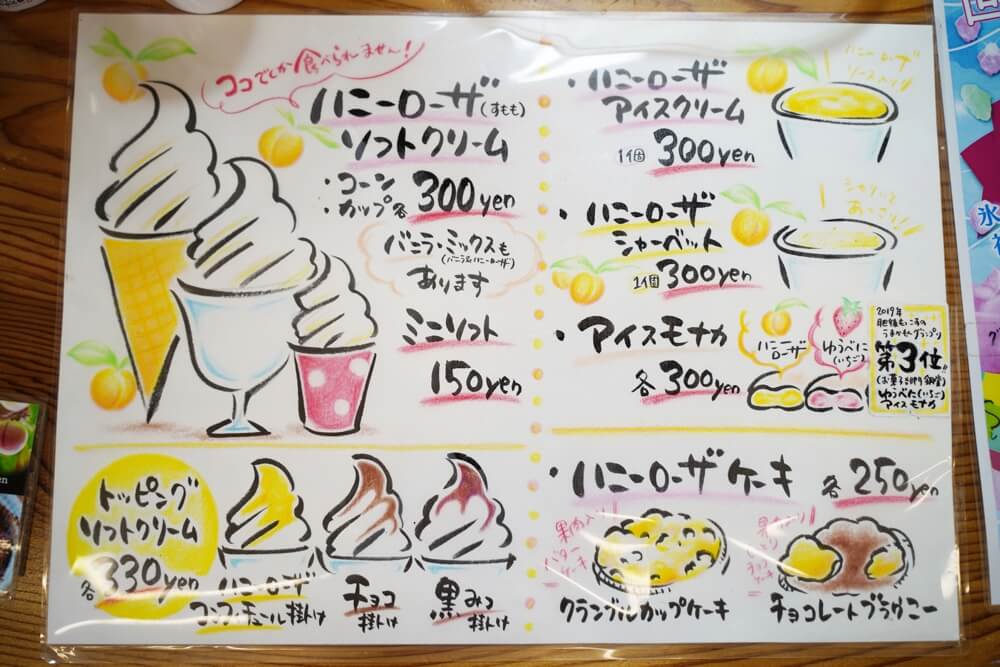 ココでしか食べられません!
ハニーローザ(すもも)
ソフトクリーム
・コーン
・カップ各 300yen
バニラ・ミックスも
(バニラ&ハニーローザ)
あります
ミニソフト
150yen
トッピング
ソフトクリーム
各330yen
ハニーローザ
掛け
チョコ
掛け
黒みつ
掛け
・ハニーローザ
アイスクリーム
1個 300yen
ハニーローザ
ソース入り!
・ハニーローザ
シャーベット
1個 300yen
・アイスモナカ
各300yen
ハニー
ローザ
ゆうべに
(いちご)
2019年
うまかもんグランプリ
第3位
ゆうべに(いちご)
アイスモナカ
・ハニーローザケーキ 各250yen
果肉入り!
バター
ケーキ
クランブルカップケーキ
果肉入り!
チョコ
ケーキ
チョコレートブラウニー
氷